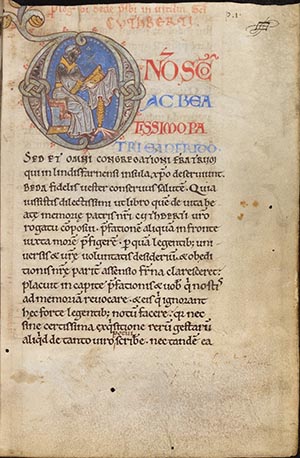 CUTHBERTI
D
NŌ SC̄O
AC BEA
TISSIMO PA
TRI EANFRIDO
SED ET OMNI CONGREGATIONI FRATRUM
qui in lindisfarnensi insula, xp̄o deseruiunt.
BEDA fidelis uester conseruus salutē. Quia
iussistis dilectissimi ut libro quē de uita be
atę memorię patris nr̄i cuthberti ur̄o
rogatu cōposui. p̄fationē aliquā in fronte
iuxta morē p̄figerē. p̱ quā legentib; uni
uersis & ur̄ę uoluntatis desideriū. & obedi
tionis nr̄ę parit̄ assensio fr̄na claresceret:
placuit in capite p̄fationis & uob̄ q̇ nostis
ad memoriā reuocare. & eis q̇ ignorant
hec forte legentib; notū facere. qr̄ nec
sine certissima exq̇sitione rerū gestarū
aliq̇d de tanto uiro scribe. nec tandē ea